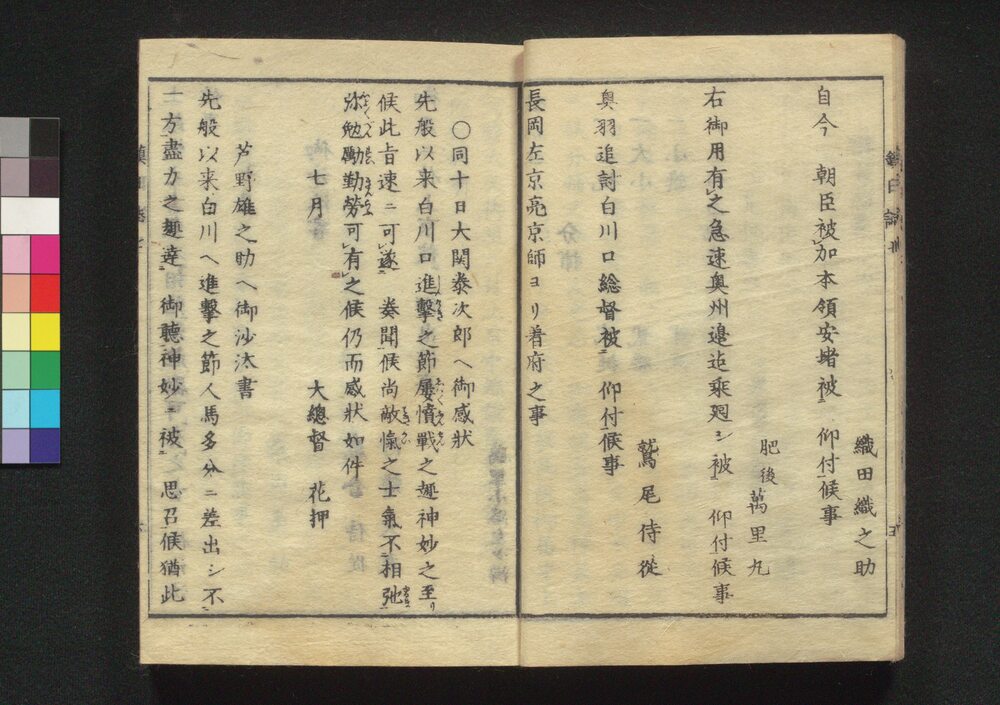 織田織之助
自今　朝臣被加本領安堵被　仰付候事
肥後萬里丸
右御用有之急速奥州邉迠乗廻シ被　仰付候事
鷲尾侍從
奥羽追討白川口総督被　仰付候事
長岡左京亮京師ヨリ着府之事
〇同十日大関泰次郎へ御感状
先般以来白川口進撃之節屡憤戰之趣神妙之至リ
候此旨速ニ可遂　奏聞候尚敵愾之士氣不相弛
弥勉勵勤勞可有之候仍而感状如件
七月　　大總督　花押
芦野雄之助へ御沙汰書
先般以来白川へ進撃之節人馬多分ニ差出シ不
一方盡力之趣達　御聽神妙ニ被　思召候猶此